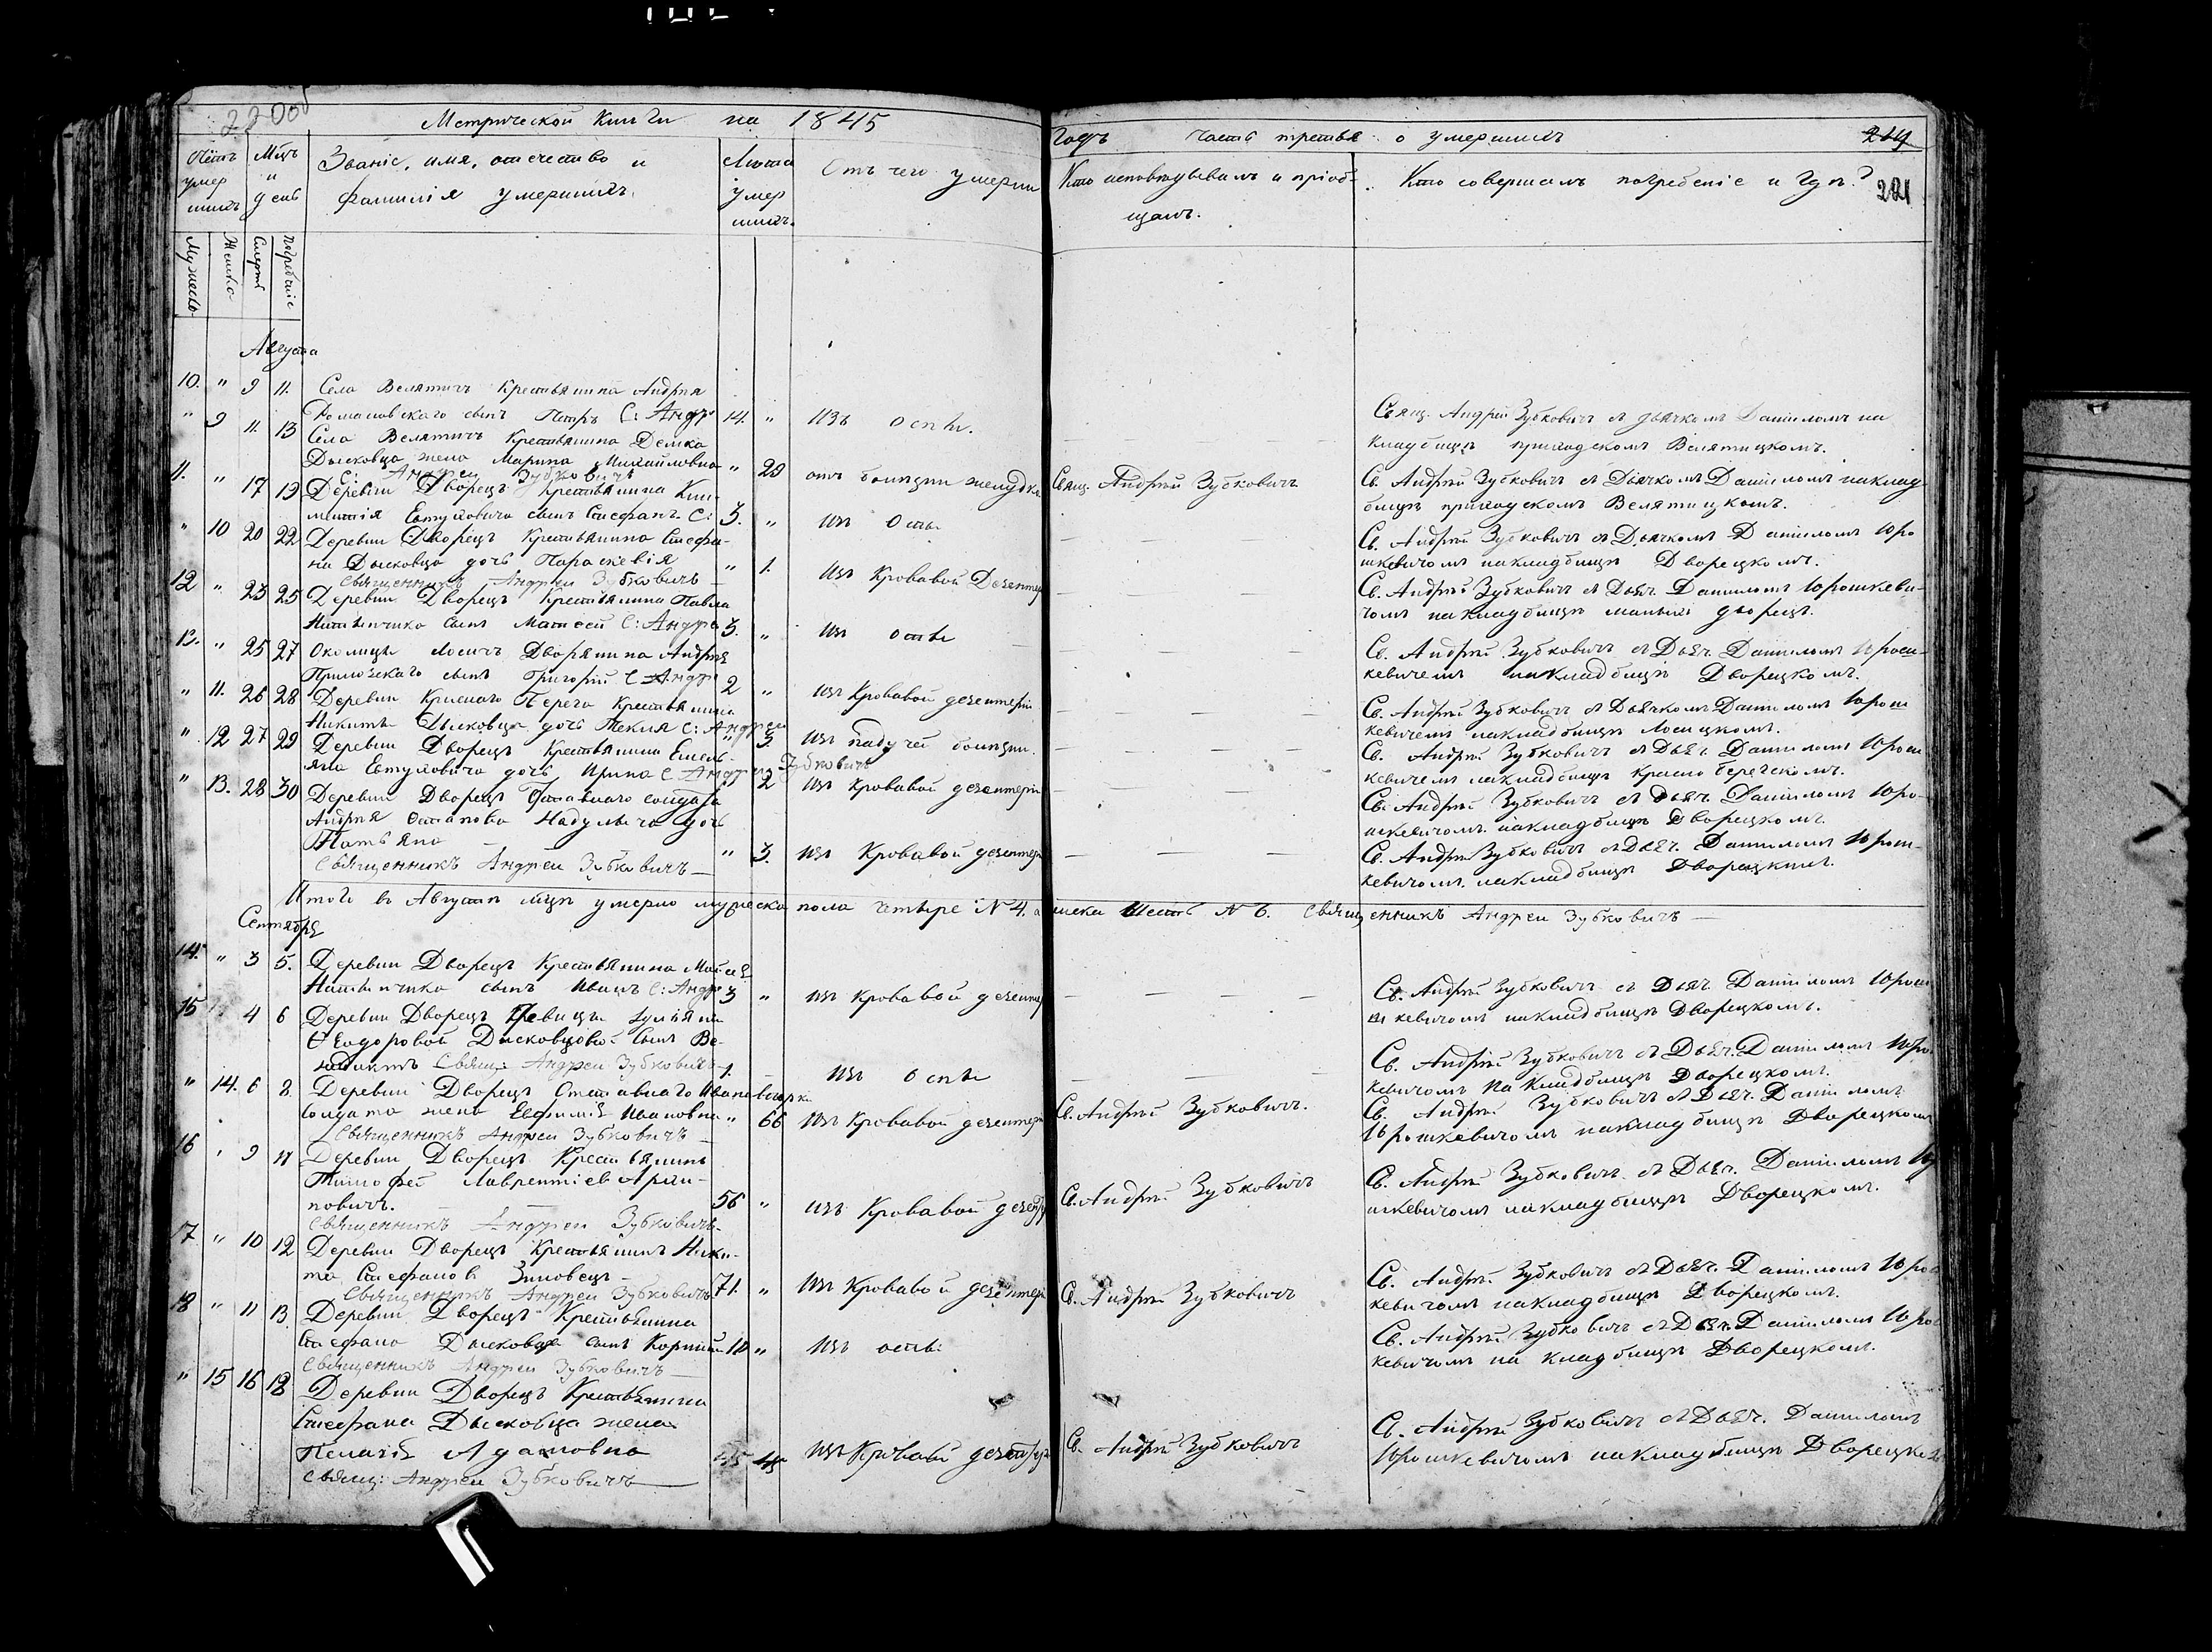 220об
Метрической Книги на 1845
Годъ часть третья о умершихъ 219
221
Счётъ умер шихъ
Мцъ и день
Званіе, имя, отечество и
фамилія умершихъ.
Лѣта умер шихъ.
Отъ чего умерли
Кто исповѣдывалъ и пріоб-
щалъ.
Кто совершалъ погребеніе и гдѣ?
Мужеска
Женска
Смерти
Погребенія
Августа
10. " 9 11. Села Велятичъ Крестьянина Андрея
Романовскаго сынъ Петръ С: Андр 14. " изъ оспы.
Свящ. Андрей Зубковичъ съ дьячкомъ Даніиломъ на
кладбищѣ приходскомъ Велятицкомъ.
" 9 11. 13 Села Велятичъ Крестьянина Демка
Дысковца жена Марина Михайловна " 29 отъ болѣзни желудка Свящ. Андрей Зубковичъ
С. Андрей Зубковичъ
Св. Андрей Зубковичъ съ Дьячкомъ Даніиломъ наклад
бищѣ приходскомъ Велятицкомъ.
11. " 17 19 Деревни Дворецъ Крестьянина Кли-
ментія Евтуховича сынъ Стефанъ С: 3. " изъ Оспы
Св. Андрей Зубковичъ съ Дьячкомъ Даніиломъ Юро
шкевичомъ накладбищѣ Дворецкомъ.
" 10 20 22 Деревни Дворецъ Крестьянина Стефа-
на Дысковца дочь Параскевія " 1. изъ Кровавой Дезентер
Священникъ Андрей Зубковичъ
Св. Андрей Зубковичъ съ Дьяч. Даніиломъ Юрошкеви-
чомъ накладбищѣ дворецъ.
12 " 23 25 Деревни Дворецъ Крестьянина Павла
сынъ Матѳей С: Андре 3. " изъ оспы
Св. Андрей Зубковичъ съ Дьяч. Даніиломъ Юрош-
кевичемъ накладбищѣ Дворецкомъ.
13. " 25 27 Околицы Лосичъ Дворянина Андрея
сынъ Григорій С Андр 2 " изъ Кровавой дезентеріи
Св. Андрей Зубковичъ съ Дьячкомъ Даніиломъ Юрош
кевичемъ накладбищѣ Лосицкомъ.
" 11. 26 28 Деревни Краснаго Берега Крестьянина
Никиты Дысковца дочь Текля С: Андрей " 3. изъ падучей болѣзни.
Св. Андрей Зубковичъ съ Дьяч. Даніиломъ Юрош
кевичемъ накладбищѣ Красно Березскомъ.
" 12 27 29 Деревни Дворецъ Крестьянина Емель-
яна Евтуховича дочь Ирина С Андрей Зубковичъ " 2 изъ Кровавой дезентеріи
Св. Андрей Зубковичъ съ Дьяч. Даніиломъ Юро-
шкевичомъ накладбищѣ Дворецкомъ.
" 13. 28 30 Деревни Дворецъ Отставнаго солдата
Андрея Остапова дочь
Татьяна " 3. изъ Кровавой дезентер
Священникъ Андрей Зубковичъ
Св. Андрей Зубковичъ съ Дьяч. Даніиломъ Юрош-
кевичомъ накладбищѣ Дворецкомъ.
Итого въ Августѣ мцѣ умерло мужеска пола четыре N 4. а женска Шесть N 6. Священникъ Андрей Зубковичъ
Сентября
14. " 3 5. Деревни Дворецъ Крестьянина Мойсея
сынъ Иванъ С: Андре 3 " изъ Кровавой дезентер
Св. Андрей Зубковичъ съ Дьяч. Даніиломъ Юрош
кевичомъ накладбищѣ Дворецкомъ.
15 " 4 6 Деревни Дворецъ Девицы Іуліяны
Ѳеодоровой Дысковцовой Сынъ Ве-
недиктъ Свящ: Андрей Зубковичъ 1. изъ Оспы
Св. Андрей Зубковичъ съ Дьяч. Даніиломъ Юрош
кевичомъ на Кладбищѣ Дворецкомъ.
" 14. 6 8. Деревни Дворецъ Отставнаго Ивана
Солдата жена Евфимія Ивановна " 66 изъ Кровавой дезентер Св. Андрей Зубковичъ.
Священникъ Андрей Зубковичъ
Св. Андрей Зубковичъ съ Дьяч. Даніиломъ
Юрошкевичомъ накладбищѣ Дворецкомъ
16 " 9 11 Деревни Дворецъ Крестьянинъ
Тимофей Лаврентіевъ
56 " изъ Кровавой дезентер Св. Андрей Зубковичъ
Священникъ Андрей Зубковичъ
Св. Андрей Зубковичъ съ Дьяч. Даніиломъ Юр
шкевичомъ накладбищѣ Дворецкомъ.
17 " 10 12 Деревни Дворецъ Крестьянинъ Ники-
та Стефановъ Зиновецъ 71. " изъ Кровавой дезентер Св. Андрей Зубковичъ
Священникъ Андрей Зубковичъ
Св. Андрей Зубковичъ съ Дьяч. Даніиломъ Юрош
кевичомъ накладбищѣ Дворецкомъ.
18 " 11 13 Деревни Дворецъ Крестьянина
Стефана Дысковца сынъ Корнилій 10 " изъ оспы
Священникъ Андрей Зубковичъ
Св. Андрей Зубковичъ съ Дьяч. Даніиломъ Юрош
кевичомъ на кладбищѣ Дворецкомъ.
" 15 16 18 Деревни Дворецъ Крестьянина
Стефана Дысковца жена
Пелагія Адамовна 45 изъ Кровавой дезентер Св. Андрей Зубковичъ
Свящ: Андрей Зубковичъ
Св. Андрей Зубковичъ съ Дьяч. Даніиломъ
Юрошкевичомъ накладбищѣ Дворецко